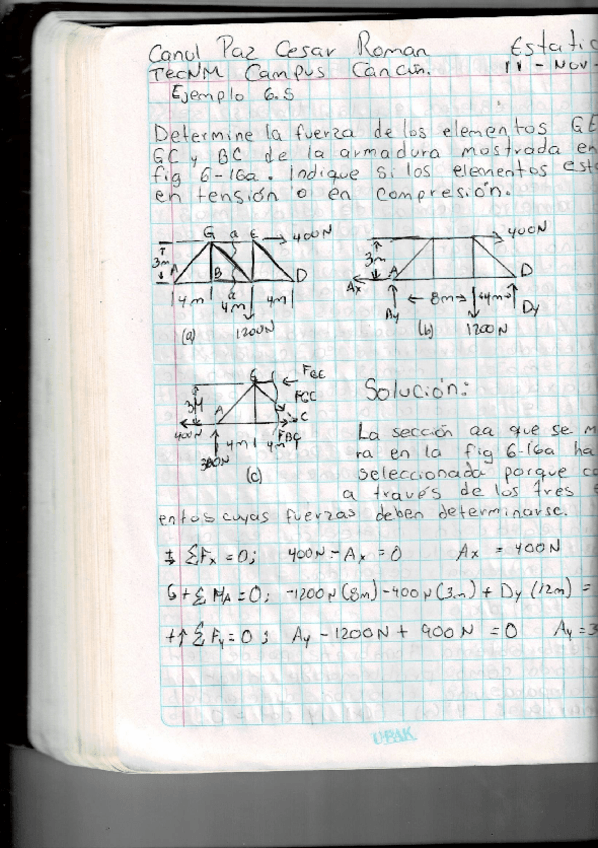 Canul Paz Cesar Roman Estatic
TecNM Campus Cancún. 11 - Nov -
Ejemplo 6.5
Determine la fuerza de los elementos GE
GC y BC de la armadura mostrada en
fig 6-16a. Indique si los elementos está
en tensión o en compresión.
G a E 400N
3m A B D
4m a 4m 4m
1200N
(a)
400N
3m A D
Ax
Ay 8m 4m Dy
1200N
(b)
G FGE
3M FGC
A C
400N 4m 4m FBC
300N
(c)
Solución:
La sección aa que se m
ra en la fig 6-16a ha
seleccionada porque co
a través de los tres e
entos cuyas fuerzas deben determinarse.
ΣFx = 0; 400N - Ax = 0 Ax = 400N
+ Σ MA = 0; -1200N(8m) - 400N(3m) + Dy (12m) =
+↑ ΣFy = 0; Ay - 1200N + 900N = 0 Ay = 3